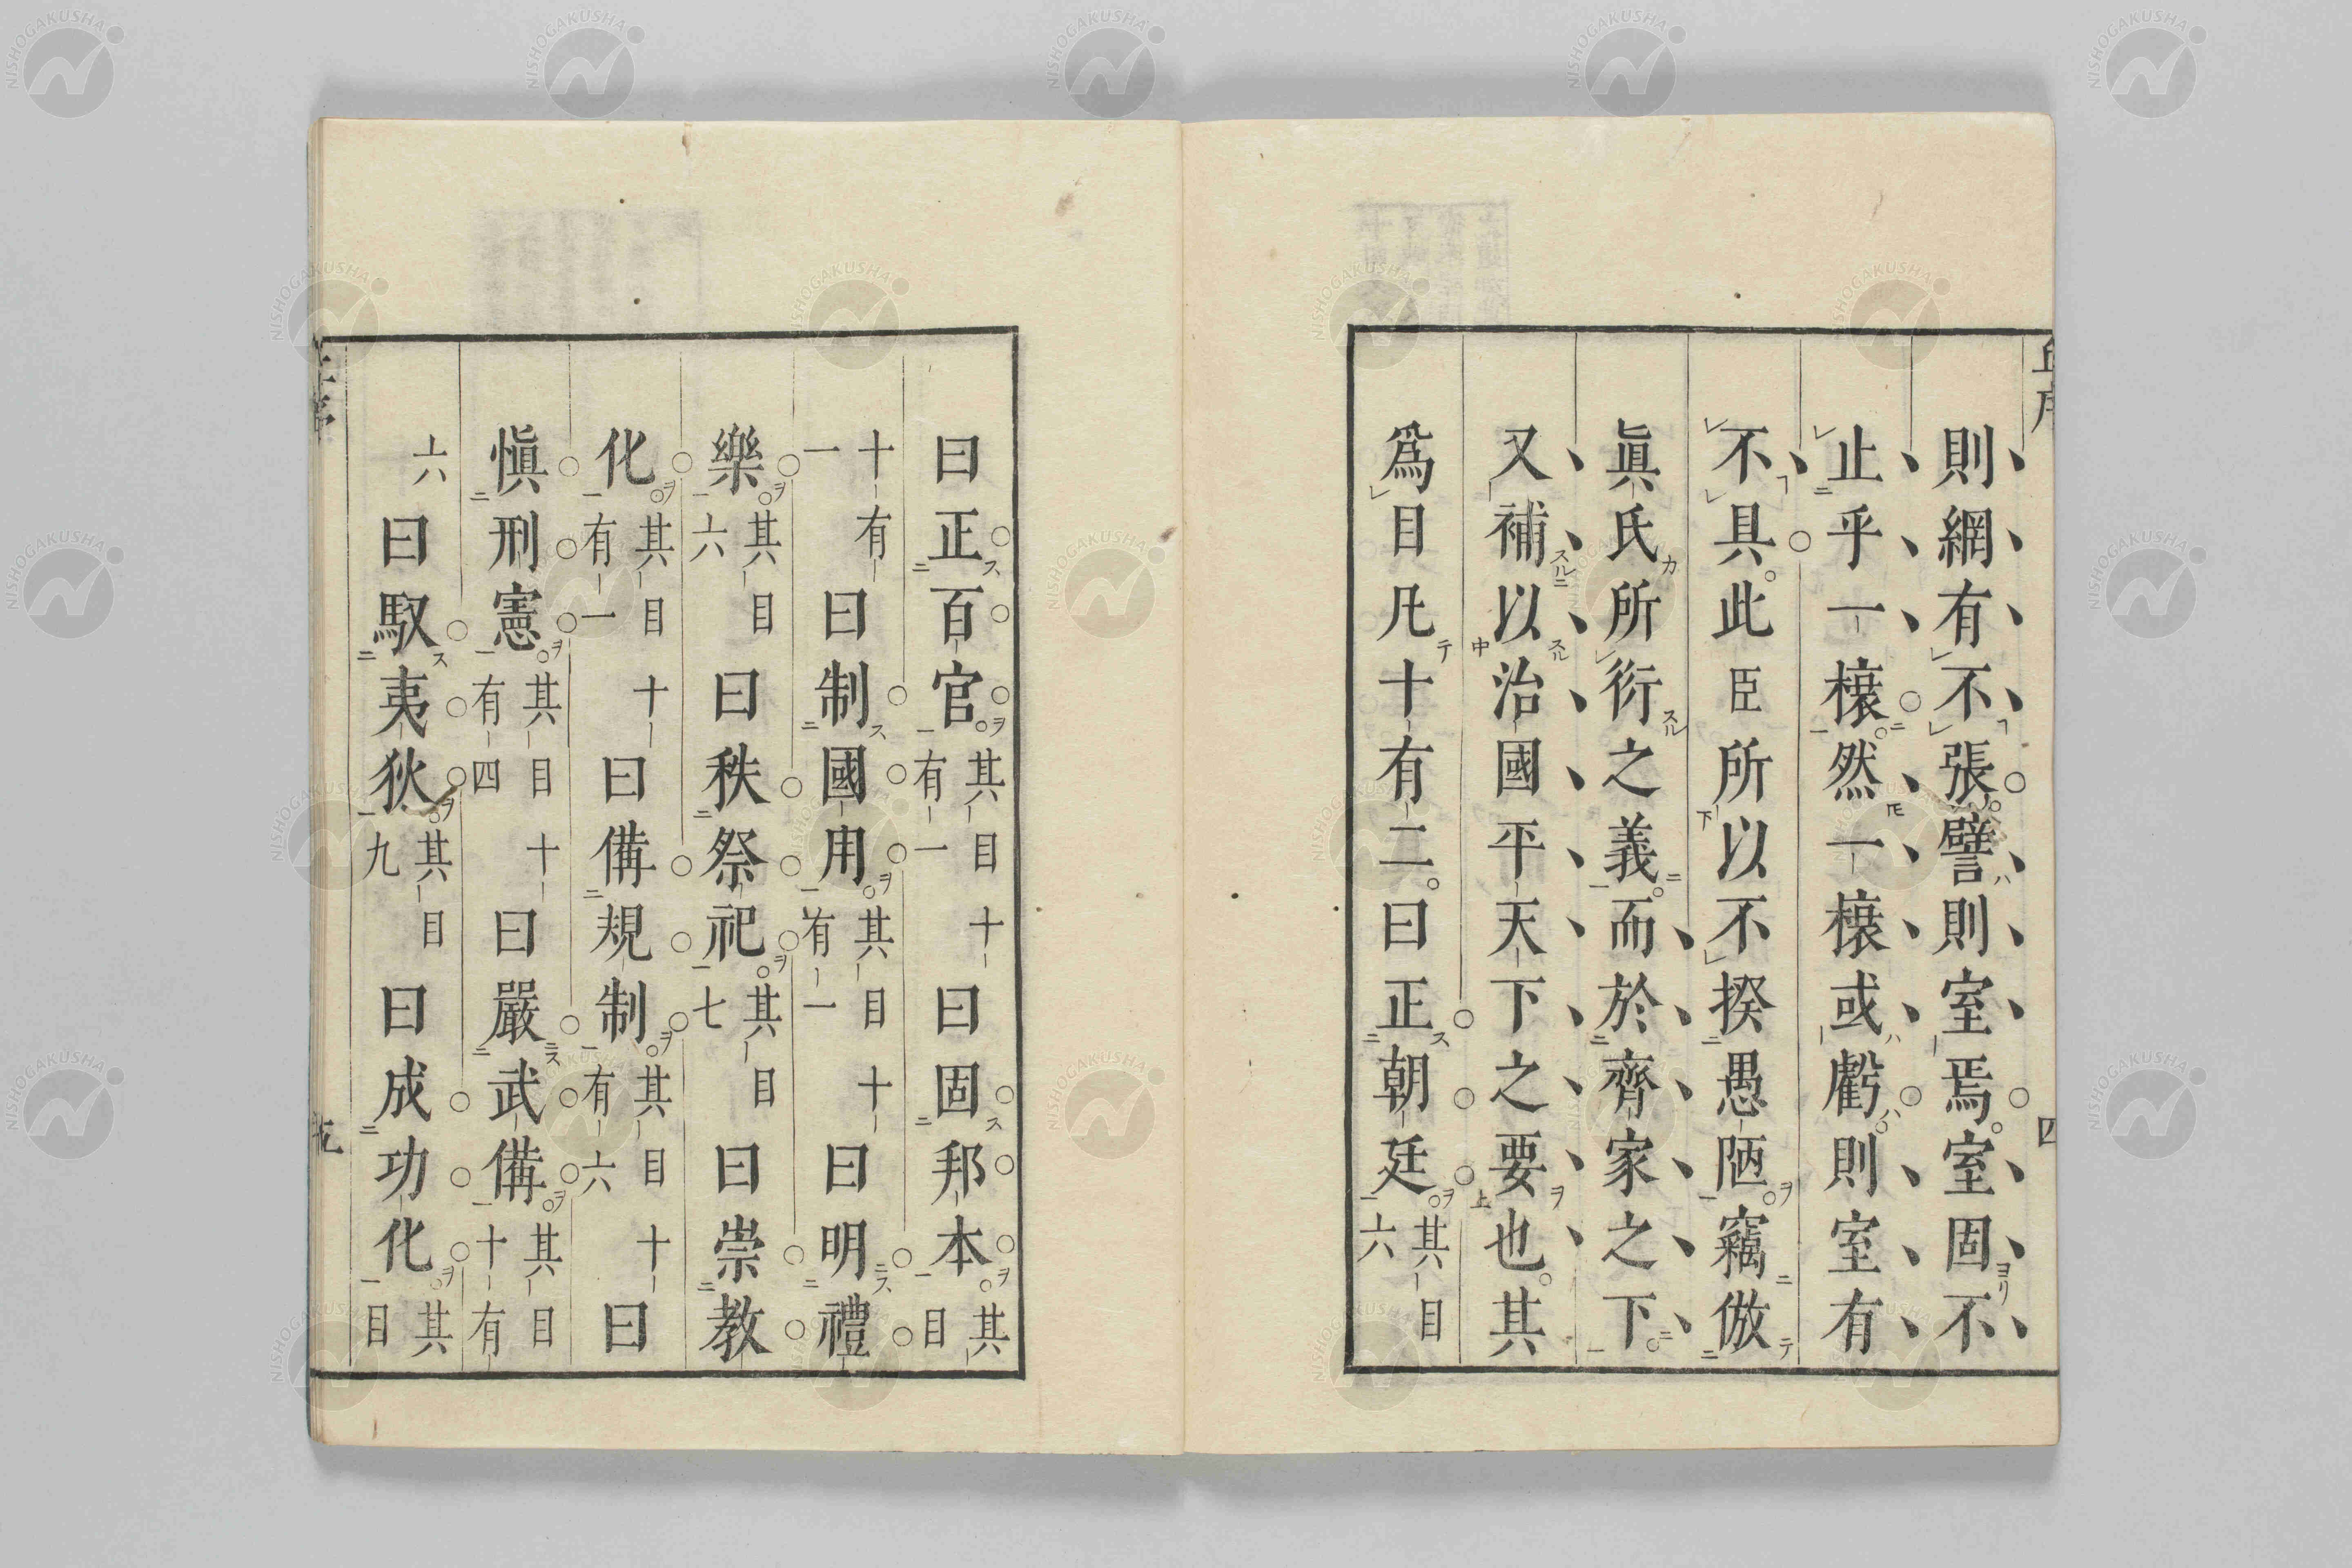 則網有不張譬則室焉室固不
止乎一榱然一榱或虧則室有
不具此臣所以不揆愚陋竊倣
眞氏所衍之義而於齊家之下
又補以治國平天下之要也其
爲目凡十有二曰正朝廷其目六
曰正百官其目有一十曰固邦本其目
十有一曰制國用其目有一十曰明禮
樂其目六曰秩祭祀其目七曰崇教
化其目有一十曰備規制其目有六十曰
愼刑憲其目有四十曰嚴武備其目十有
六曰馭夷狄其目九曰成功化其目
四
NISHOGAKUSHA